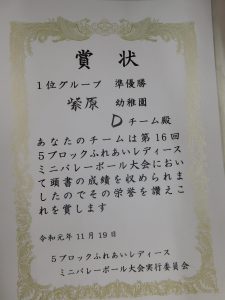 賞状
1位グループ 準優勝
紫原 幼稚園
Dチーム殿
あなたのチームは第16回
5ブロックふれあいレディース
ミニバレーボール大会におい
て頭書の成績を収められまし
たのでその栄誉を讃えこ
れを賞します
令和元年11月19日
5ブロックふれあいレディース
ミニバレーボール大会実行委員会